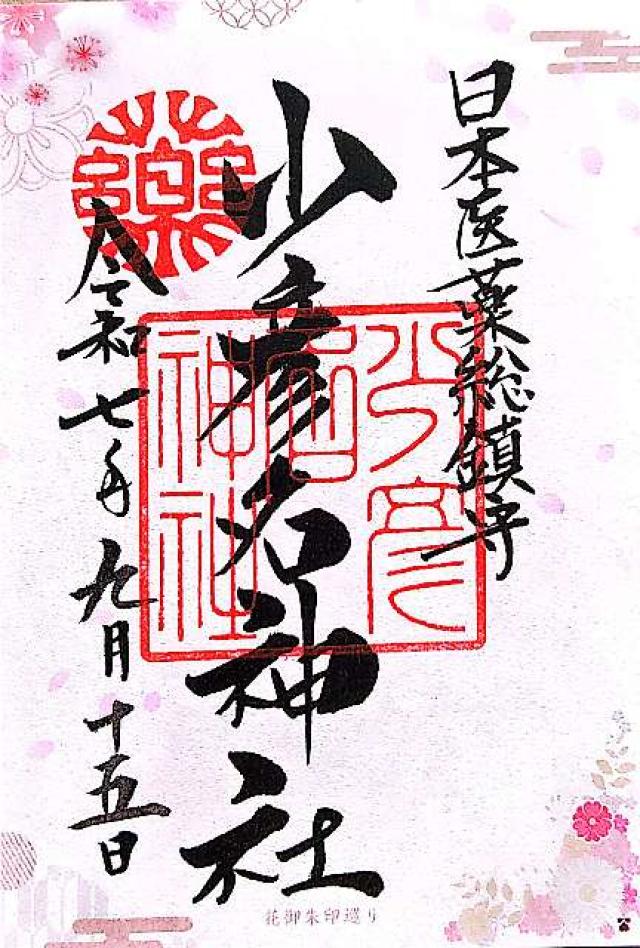 日本医薬総鎮守
少彦名神社
令和七年九月十五日
薬
少彦
名
神社
花御朱印巡り